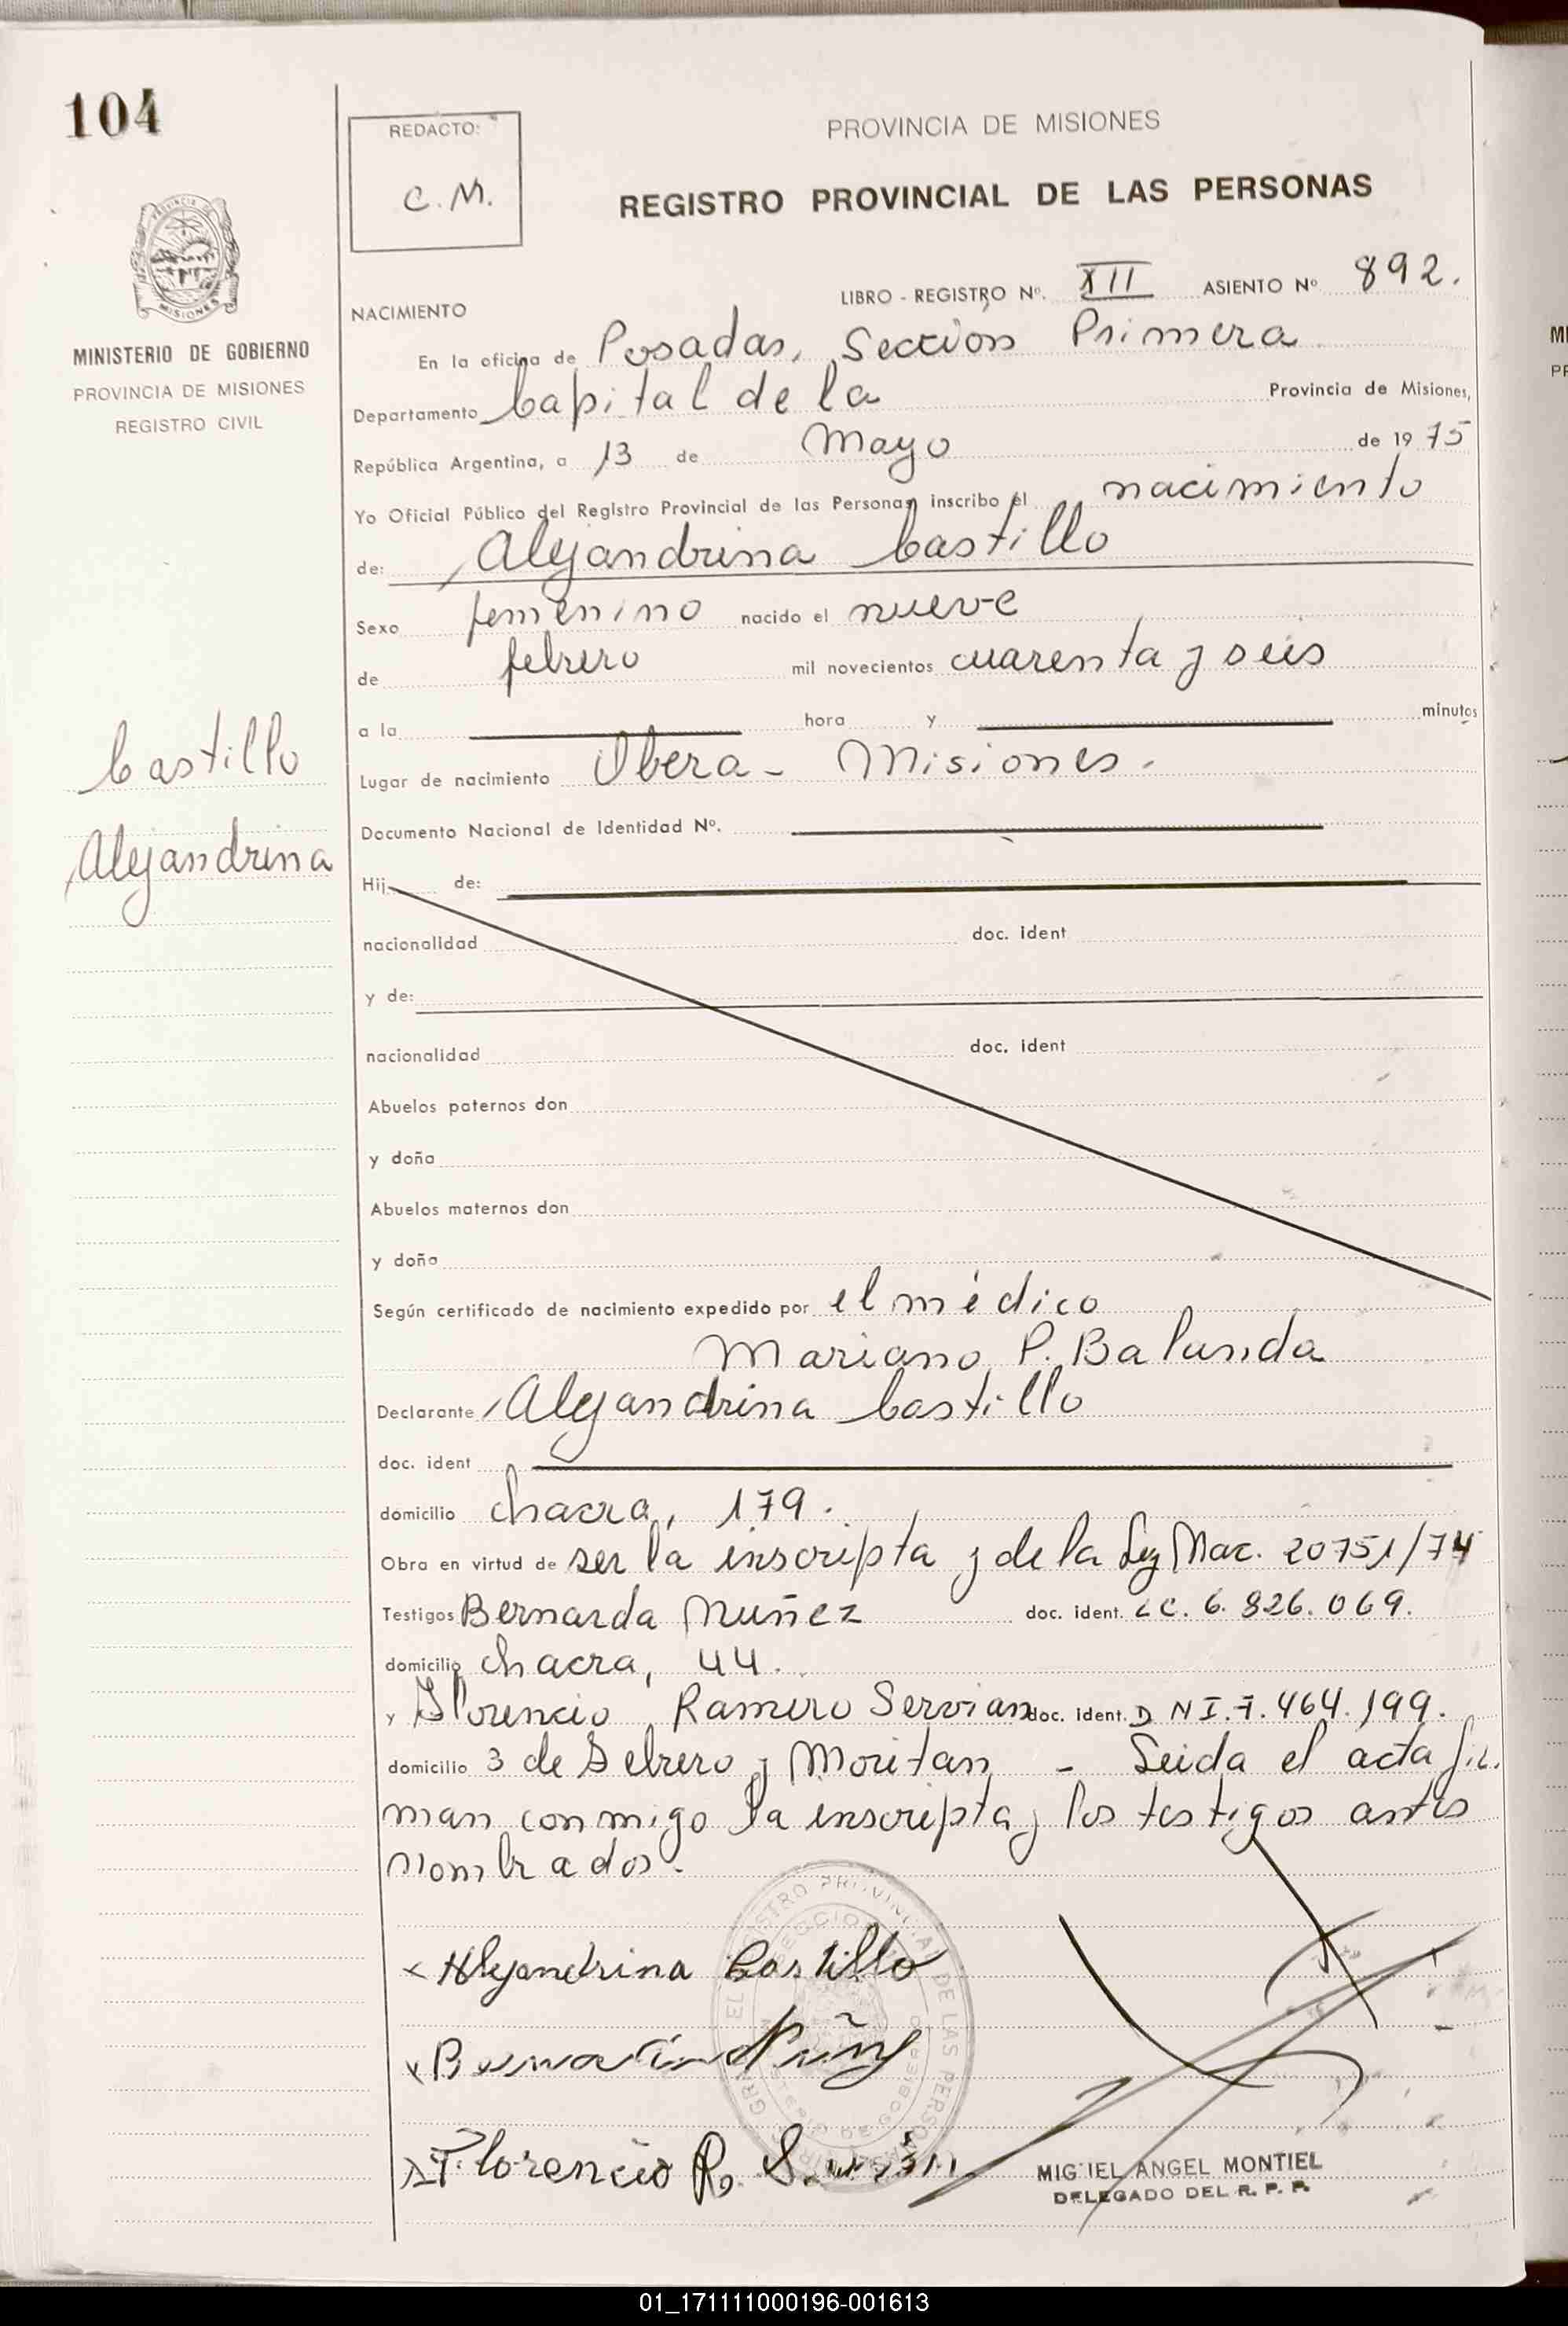 104
REDACTO:
C.M.
PROVINCIA DE MISIONES
REGISTRO PROVINCIAL DE LAS PERSONAS
MISIONES
MINISTERIO DE GOBIERNO
PROVINCIA DE MISIONES
REGISTRO CIVIL
LIBRO - REGISTRO Nº. XII ASIENTO Nº 892.
NACIMIENTO
En la oficina de Posadas, Sección Primera
Departamento Capital de la Provincia de Misiones,
República Argentina, a 13 de Mayo de 1975
Yo Oficial Público del Registro Provincial de las Personas inscribo el nacimiento
de: Alejandrina Castillo
Sexo femenino nacido el nueve
de febrero mil novecientos cuarenta y seis
a la hora y minutos
Castillo
Lugar de nacimiento Obera - Misiones.
Documento Nacional de Identidad Nº.
Alejandrina
Hij de:
nacionalidad doc. ident
y de:
nacionalidad doc. ident
Abuelos paternos don
y doña
Abuelos maternos don
y doña
Según certificado de nacimiento expedido por el médico
Mariano P. Balanda
Declarante Alejandrina Castillo
doc. ident
domicilio chacra, 179.
Obra en virtud de ser la inscripta y de la Ley Nac. 20751/74
Testigos Bernarda Nuñez doc. ident. LC. 6.826.069.
domicilio chacra, 44.
y Florencio Ramero Servian doc. ident. D N I. 7.464.199.
domicilio 3 de Febrero y Moritan - Leida el acta fir
man conmigo la inscripta y los testigos antes
nombrados.
Alejandrina Castillo
Florencio R.
MIGUEL ANGEL MONTIEL
DELEGADO DEL R. P. P.
01_171111000196-001613